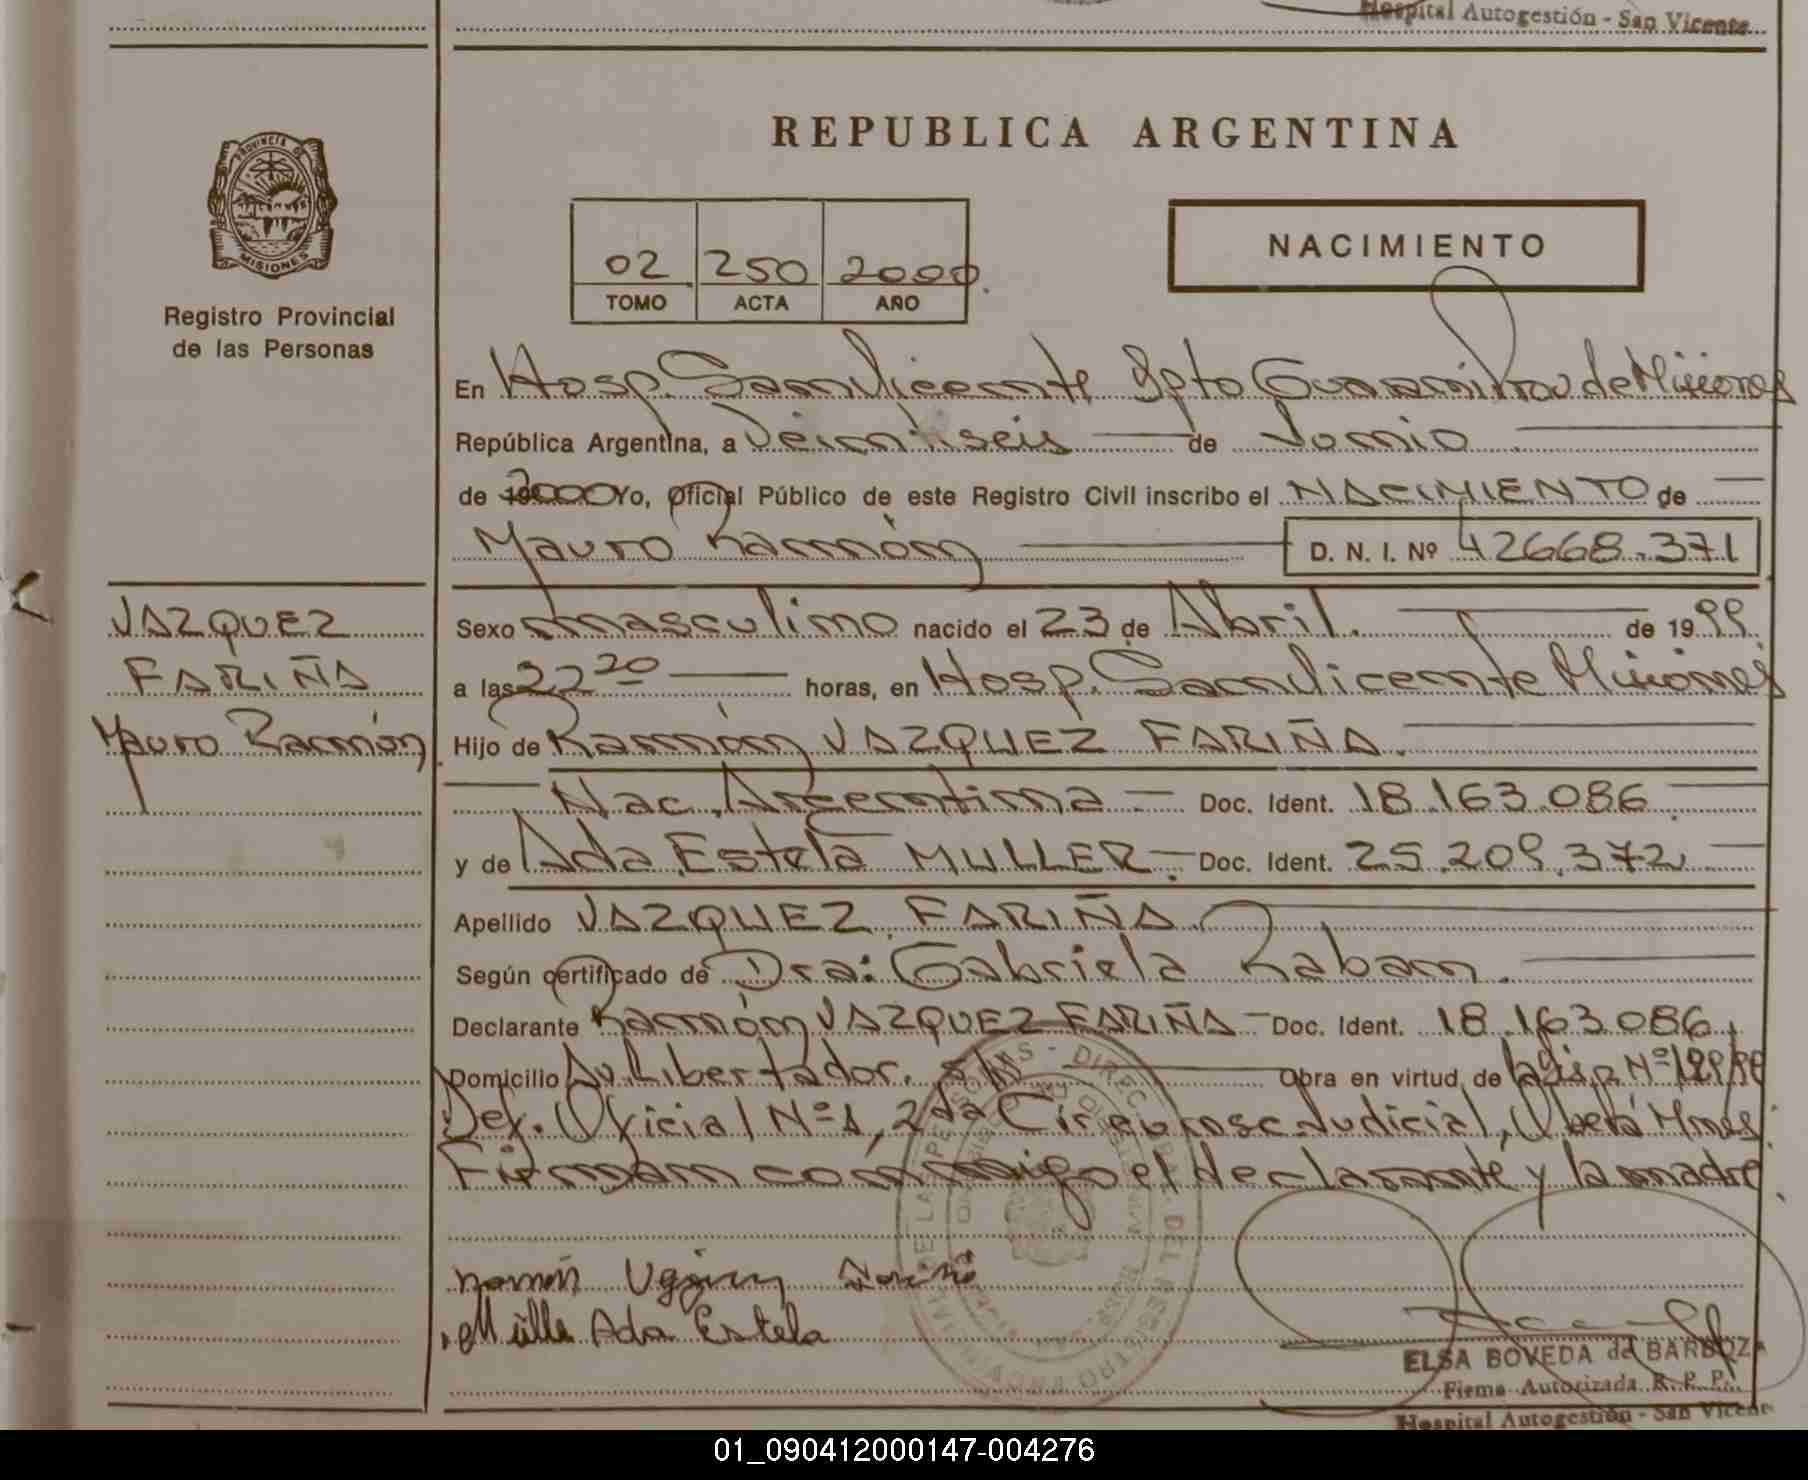 Hospital Autogestión - San Vicente
REPUBLICA ARGENTINA
PROVINCIA DE
MISIONES
Registro Provincial
de las Personas
02 250 2000
TOMO ACTA AÑO
NACIMIENTO
En Hosp. San Vicente Dpto Guaraní Prov de Misiones
República Argentina, a Veintiseis de Junio
de 2000 Yo, Oficial Público de este Registro Civil inscribo el NACIMIENTO de
Mauro Ramón D. N. I. Nº 42668.371
VAZQUEZ
FARIÑA
Mauro Ramón
Sexo masculino nacido el 23 de Abril. de 1999.
a las 22 20 horas, en Hosp. San Vicente Misiones
Hijo de Ramón VAZQUEZ FARIÑA.
Nac. Argentina Doc. Ident. 18.163.086
y de Ada Estela MULLER. Doc. Ident. 25.209.372
Apellido VAZQUEZ FARIÑA.
Según certificado de Dra: Gabriela Raban.
Declarante Ramón VAZQUEZ FARIÑA Doc. Ident. 18.163.086
Domicilio Av. Libertador. s/n Obra en virtud de Nº
Def. Oficial Nº 1, 2da Circunosc. Judicial, Oberá Mnes.
Firman conmigo el declarante y la madre
Ramón
Müller Ada Estela
ELSA BOVEDA de BARBOZA
Firma Autorizada R. P. P.
Hospital Autogestión - San Vicente
01_090412000147-004276